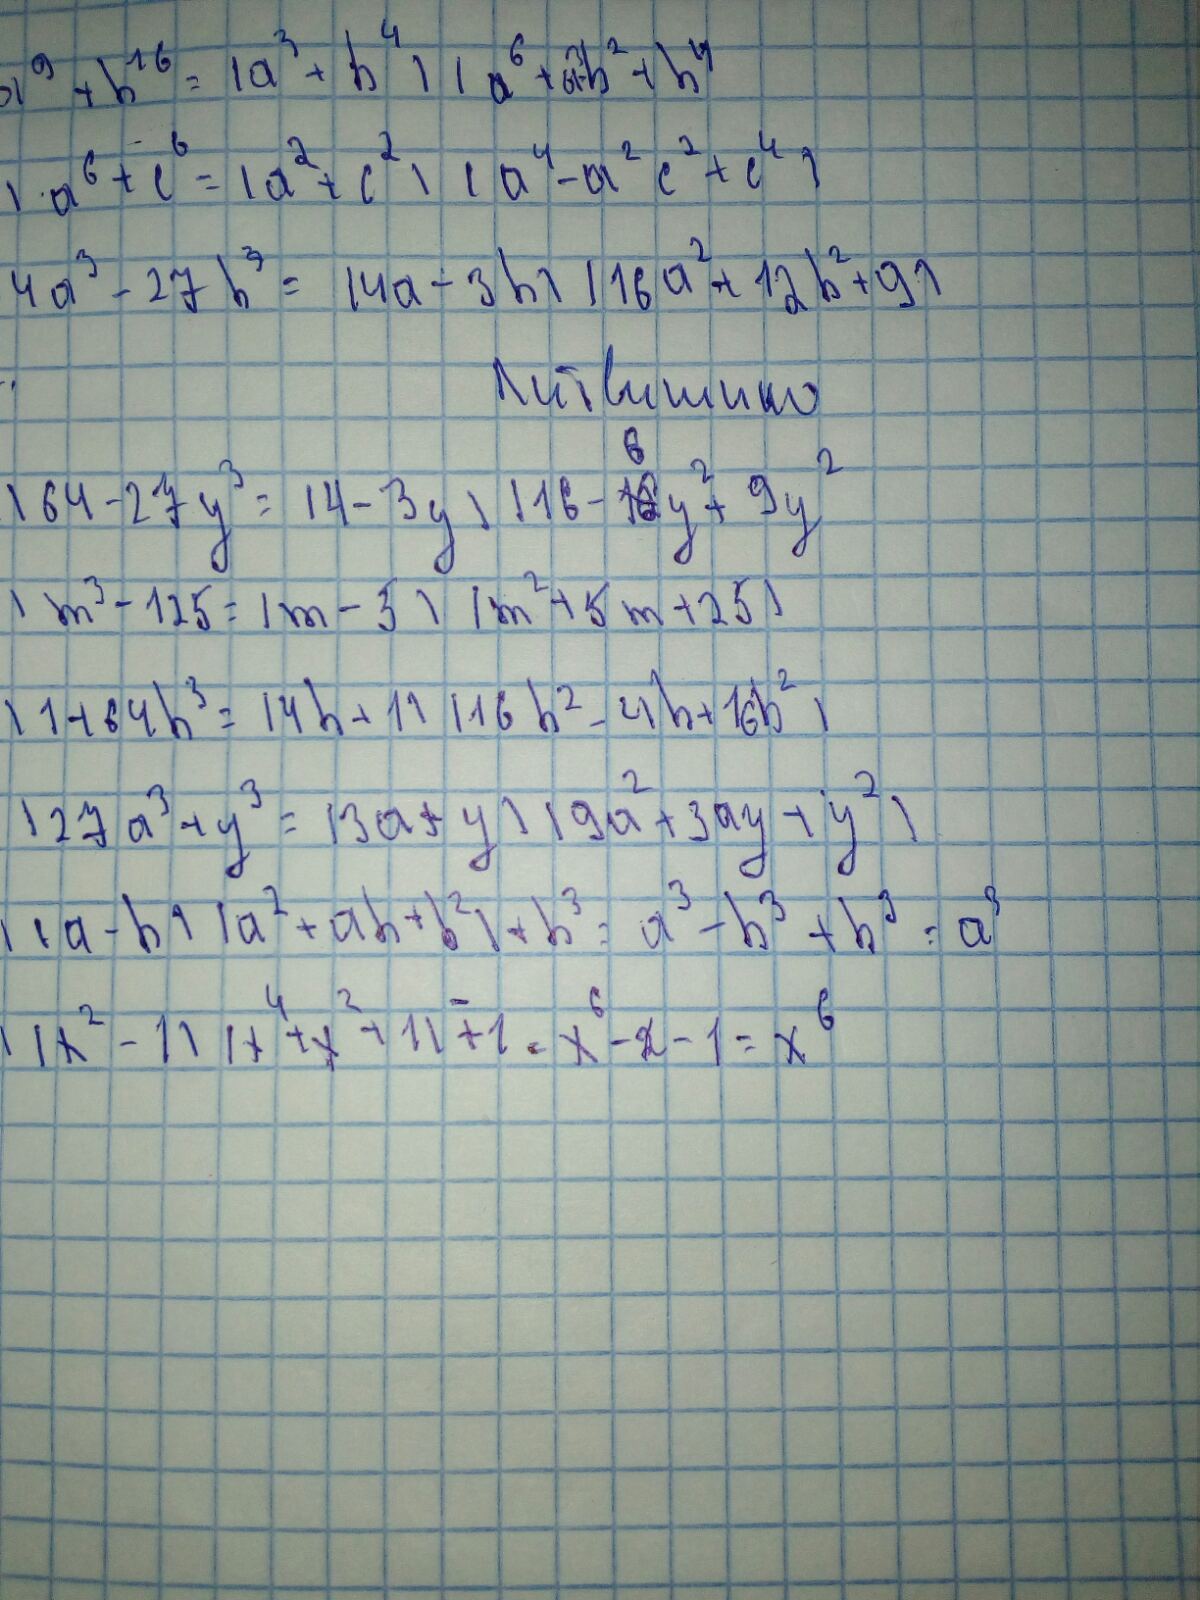 a⁹ + b¹⁶ = (a³ + b⁴) (a⁶ + b² + b⁴
) a⁶ + c⁶ = (a² + c²) (a⁴ - a²c² + c⁴)
4a³ - 27b³ = (4a - 3b) (16a² + 12b² + 9)
) 64 - 27y³ = (4 - 3y) (16 - 6y² + 9y²
) m³ - 125 = (m - 5) (m² + 5m + 25)
) 1 + 64b³ = (4b + 1) (16b² - 4b + 16b²)
) 27a³ + y³ = (3a + y) (9a² + 3ay + y²)
) (a - b) (a² + ab + b²) + b³ = a³ - b³ + b³ = a³
) (x² - 1) (x⁴ + x² + 1) + 1 = x⁶ - - 1 = x⁶